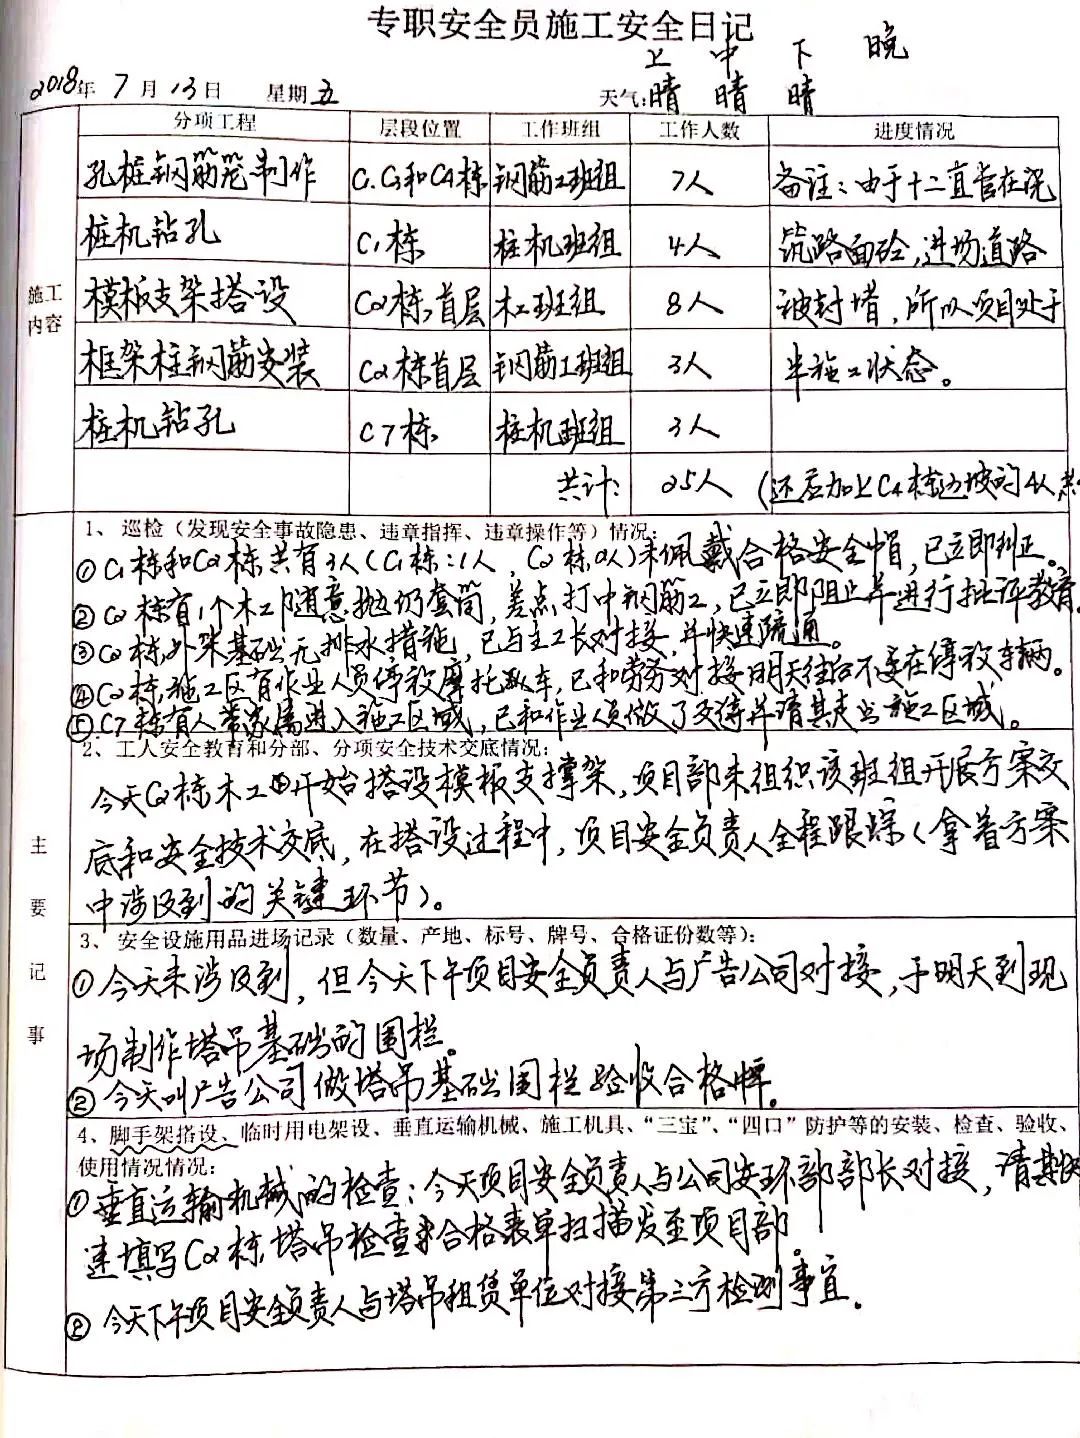 专职安全员施工安全日记
上 中 下 晚
2018年7月13日 星期五 天气:晴 晴 晴
分项工程 层段位置 工作班组 工作人数 进度情况
孔桩钢筋笼制作 C1.C3和C4栋 钢筋工班组 7人 备注:由于十二直管在浇
桩机钻孔 C1栋 桩机班组 4人 筑路面砼,进场道路
施工内容
模板支架搭设 C2栋,首层 木工班组 8人 被封堵,所以项目处于
框架柱钢筋安装 C2栋首层 钢筋工班组 3人 半施工状态。
桩机钻孔 C7栋 桩机班组 3人
共计: 25人 (还应加上C4栋边坡的4人
主要记事
1、巡检(发现安全事故隐患、违章指挥、违章操作等)情况:
①C1栋和C2栋共有3人(C1栋:1人,C2栋2人)未佩戴合格安全帽,已立即纠正。
②C2栋有1个木工随意抛仍套筒,差点打中钢筋工,已立即阻止并进行批评教育
③C2栋外架基础无排水措施,已与主工长对接,并快速疏通。
④C2栋施工区有作业人员停放摩托车,已和劳务对接明天往后不要在停放车辆。
⑤C7栋有人带家属进入施工区域,已和作业人员做了交待并请其走出施工区域。
2、工人安全教育和分部、分项安全技术交底情况:
今天C2栋木工开始搭设模板支撑架,项目部未组织该班组开展方案交
底和安全技术交底,在搭设过程中,项目安全负责人全程跟踪(拿着方案
中涉及到的关键环节)。
3、安全设施用品进场记录(数量、产地、标号、牌号、合格证份数等):
①今天未涉及到,但今天下午项目安全负责人与广告公司对接,于明天到现
场制作塔吊基础的围栏。
②今天叫广告公司做塔吊基础围栏验收合格牌。
4、脚手架搭设、临时用电架设、垂直运输机械、施工机具、“三宝”、“四口”防护等的安装、检查、验收、
使用情况情况:
①垂直运输机械的检查:今天项目安全负责人与公司安环部部长对接,请其快
速填写C2栋塔吊检查合格表单扫描发至项目部。
②今天下午项目安全负责人与塔吊租赁单位对接第三方检测事宜。